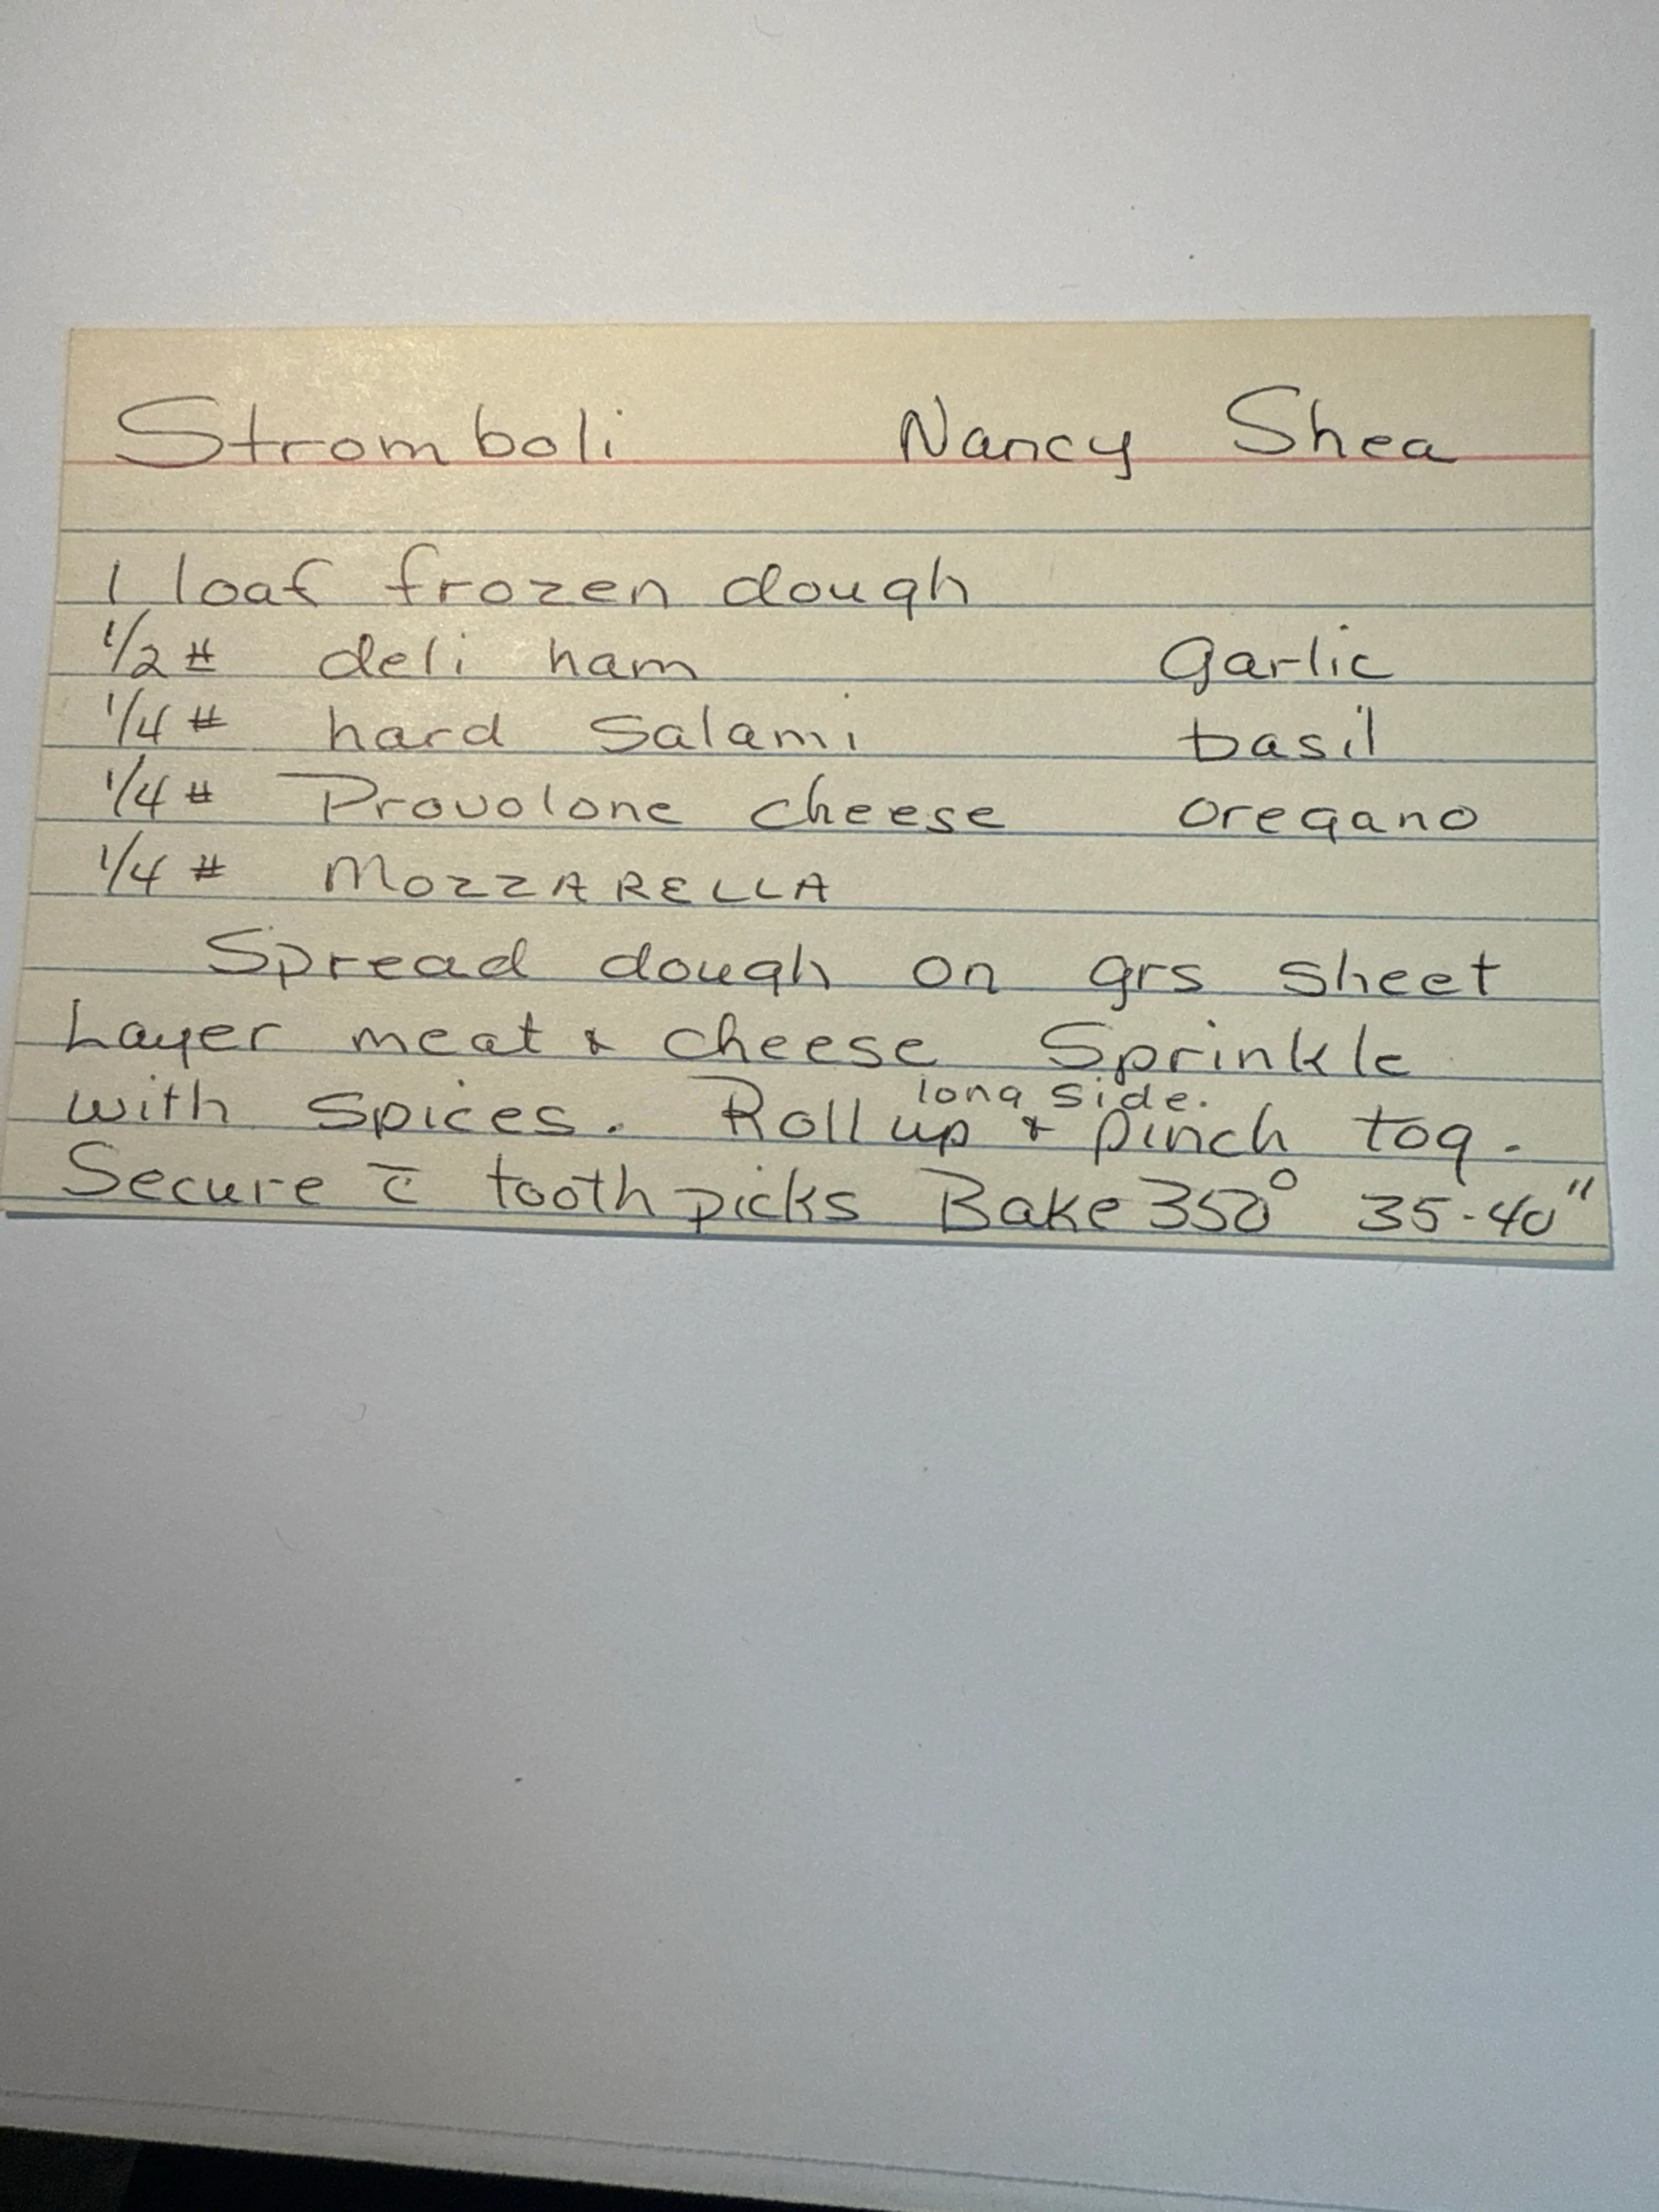 Stromboli Nancy Shea
1 loaf frozen dough
1/2 # deli ham Garlic
1/4 # hard Salami basil
1/4 # Provolone cheese oregano
1/4 # MOZZARELLA
Spread dough on grs sheet
Layer meat & cheese Sprinkle
long side.
with spices. Roll up & pinch tog.
Secure c̄ toothpicks Bake 350° 35-40"